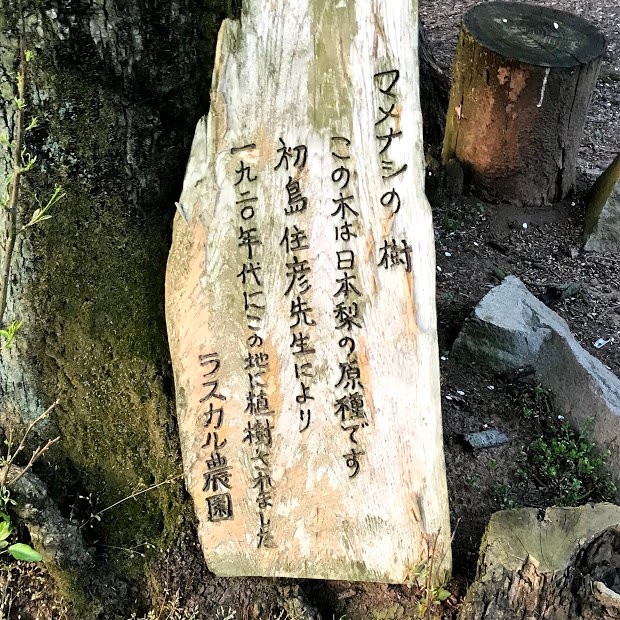 マメナシの樹
この木は日本梨の原種です
初島住彦先生により
一九二〇年代にこの地に植樹されました
ラスカル農園